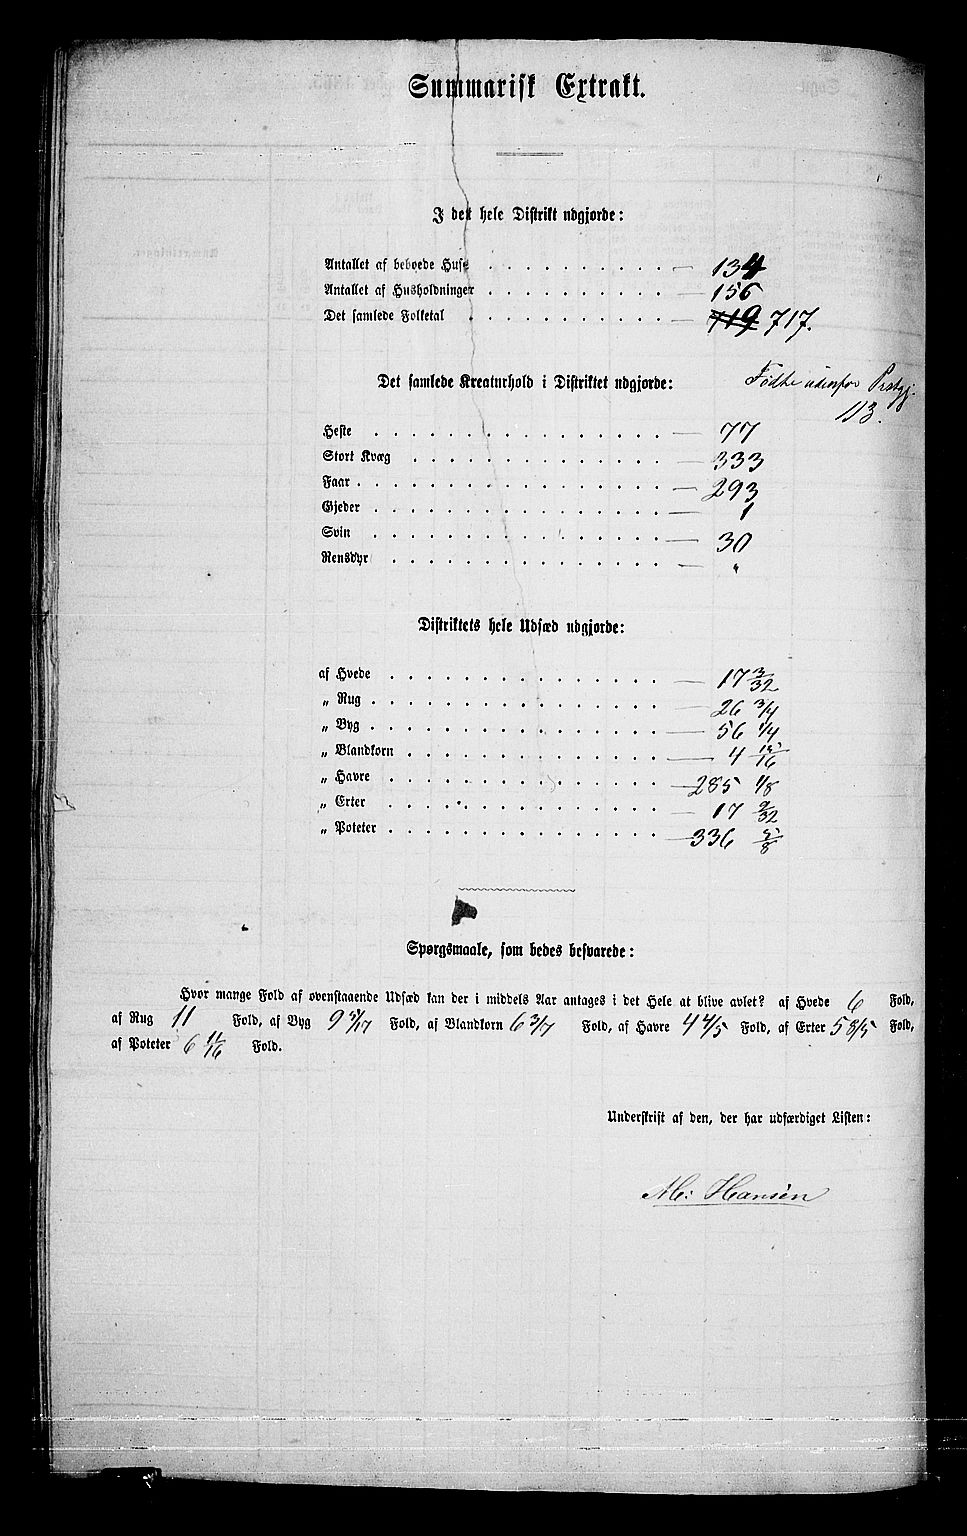 Summarisk Extrakt.
I det hele Distrikt udgjorde:
Antallet af beboede Huse . . . . . . . . . . — 134
Antallet af Husholdninger . . . . . . . . . . — 156
Det samlede Folketal . . . . . . . . . . — 719 717.
Det samlede Kreaturhold i Distriktet udgjorde:
Fødte udenfor Prstgj.
113.
Heste . . . . . . . . . . — 77
Stort Kvæg . . . . . . . . . . — 333
Faar . . . . . . . . . . — 293
Gjeder . . . . . . . . . . — 1
Svin . . . . . . . . . . — 30
Rensdyr . . . . . . . . . . — "
Distriktets hele Udsæd udgjorde:
af Hvede . . . . . . . . . . — 17 3/32
„ Rug . . . . . . . . . . — 26 3/4
„ Byg . . . . . . . . . . — 56 1/4
„ Blandkorn . . . . . . . . . . — 4 15/16
„ Havre . . . . . . . . . . — 285 1/8
„ Erter . . . . . . . . . . — 17 9/32
„ Poteter . . . . . . . . . . — 336 5/8
Spørgsmaale, som bedes besvarede:
Hvor mange Fold af ovenstaaende Udsæd kan der i middels Aar antages i det Hele at blive avlet? af Hvede 6 Fold,
af Rug 11 Fold, af Byg 9 Fold, af Blandkorn 6 3/7 Fold, af Havre 4 4/5 Fold, af Erter 5 8/15 Fold,
af Poteter 6 11/16 Fold.
Underskrift af den, der har udfærdiget Listen:
Hansen